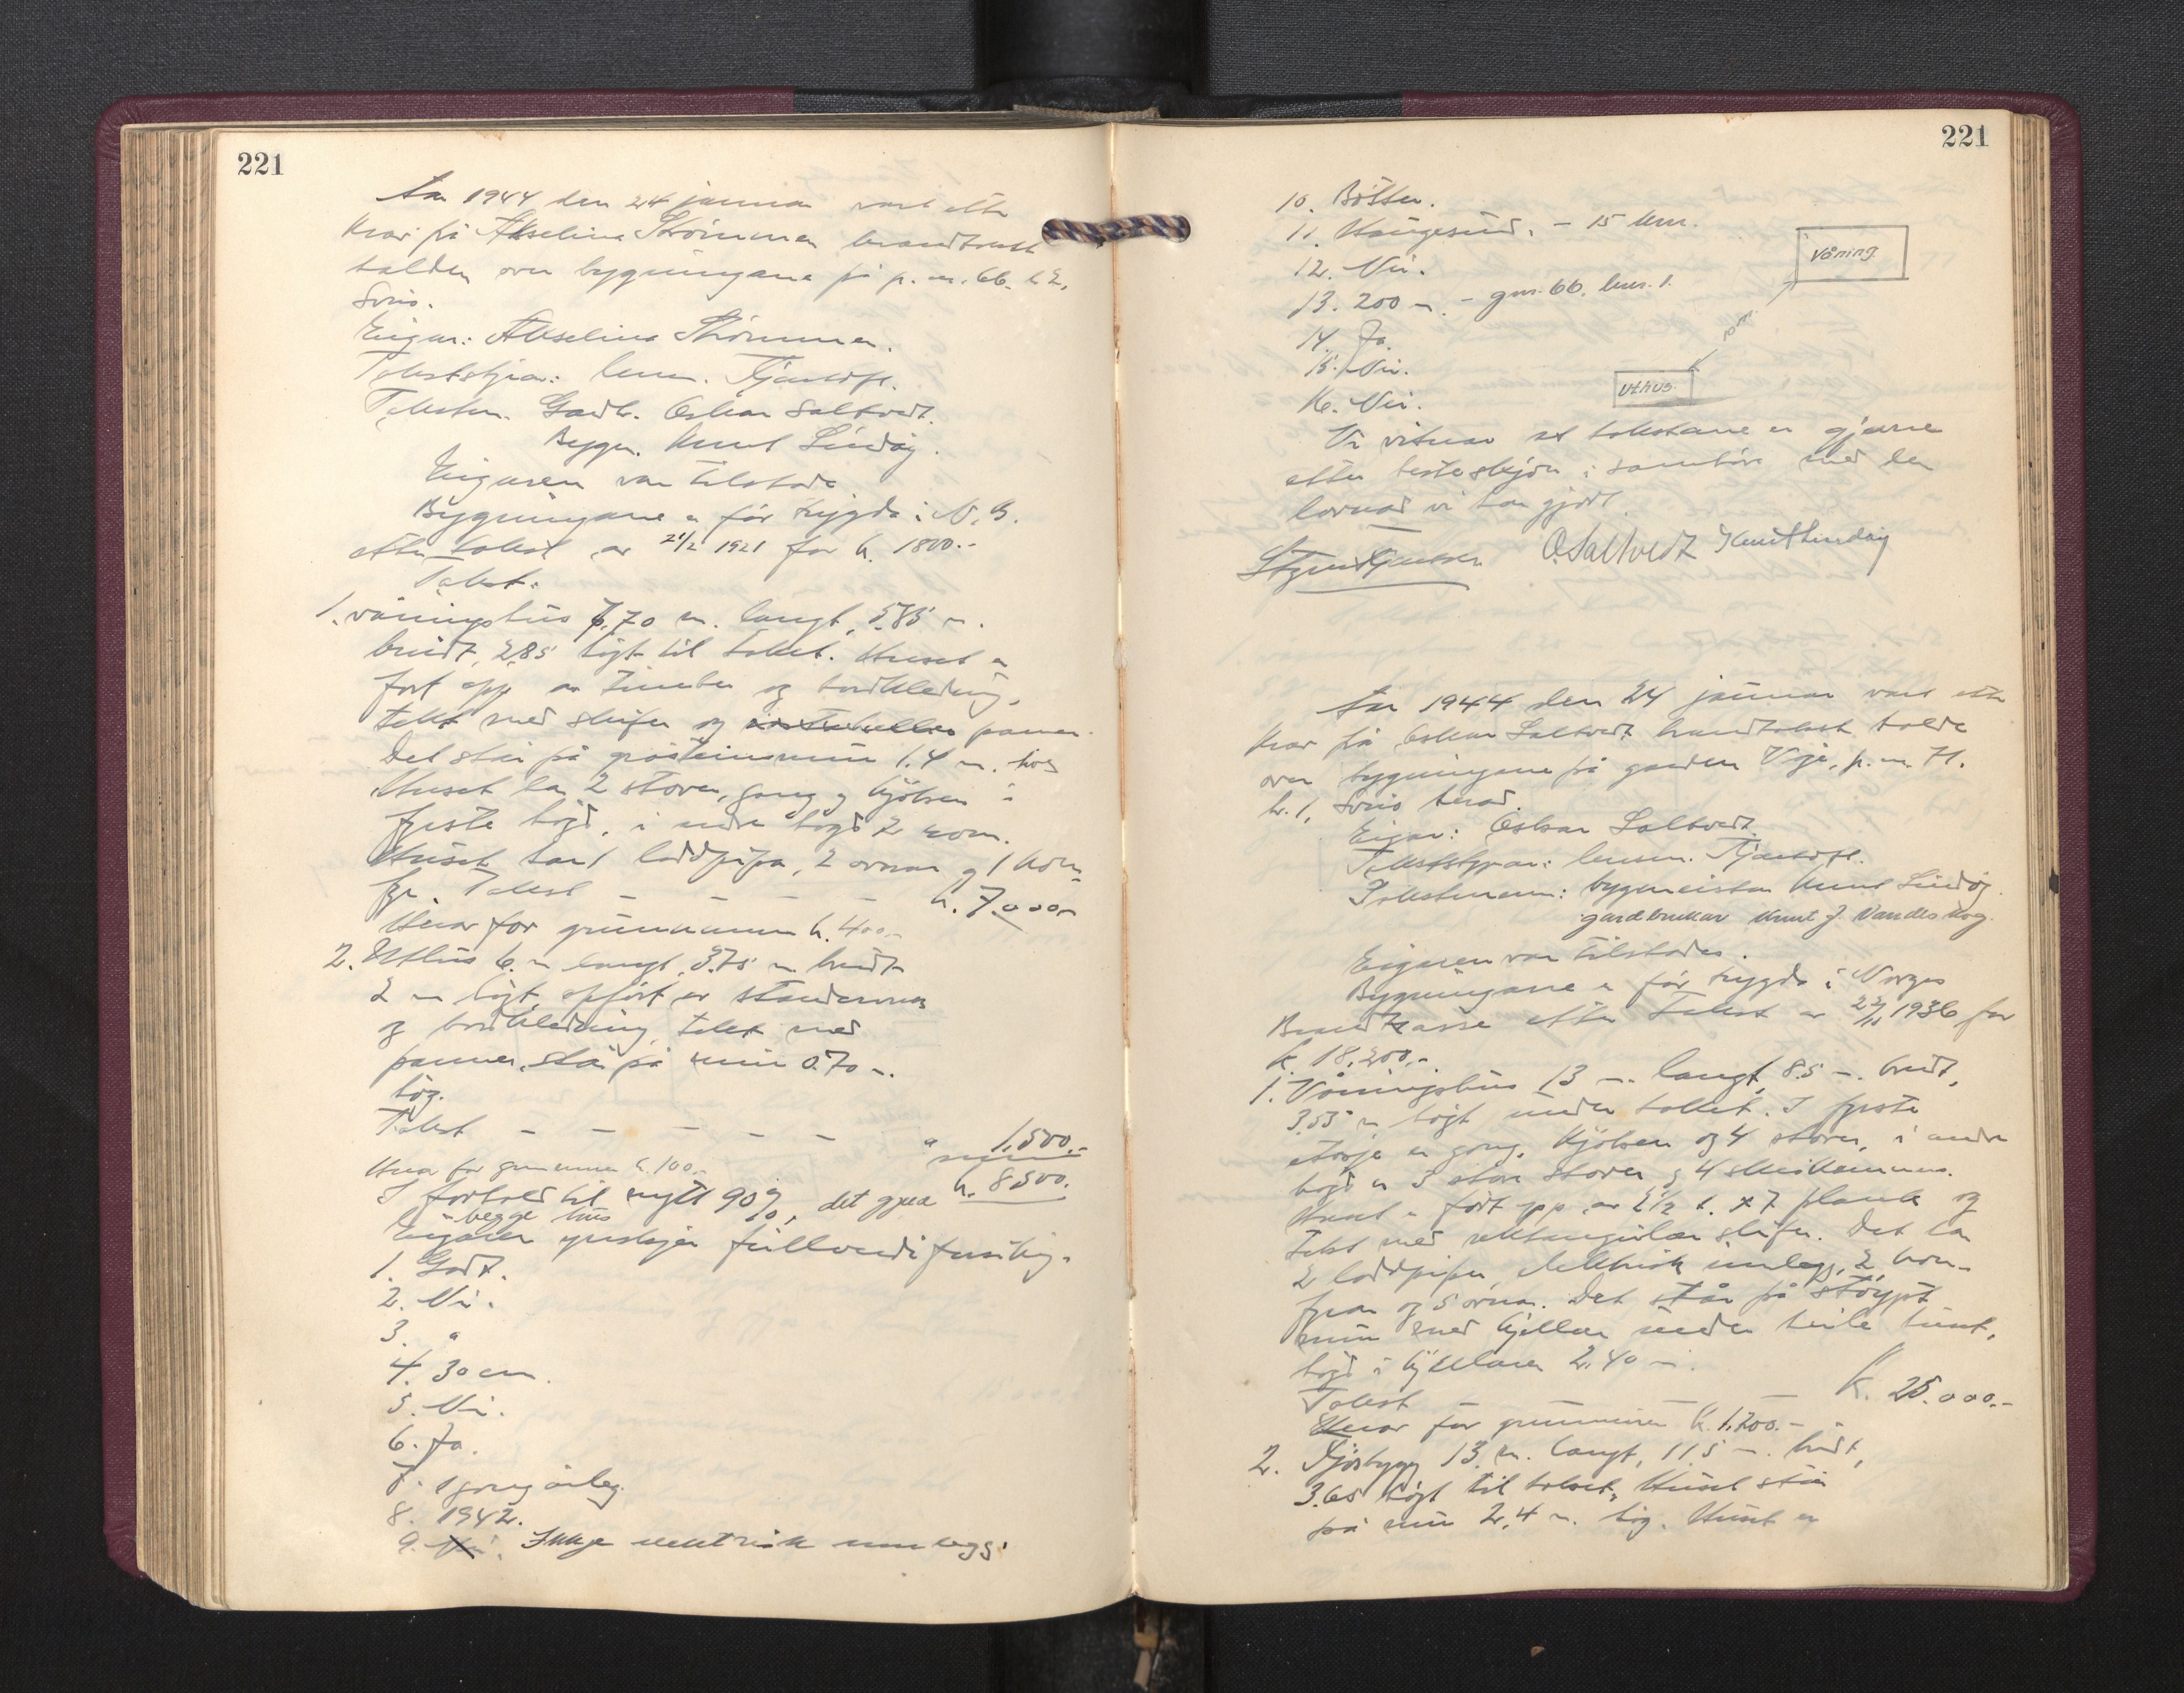 221
År 1944 den 24 januar vart etter
krav frå Akselina Strømmen brandtakst
halden over bygningane på g. nr. 66. b 2,
Sveio.
Eigar: Akselina Strømmen.
Takststyrar: lensm. Tjantoft.
Takstm. Gardb. Oskar Saltvedt.
Byggm. Knut Lindøy.
Eigaren var tilstades
Bygningane er før trygda i N. B.
etter takst av 21/2 1921 for k. 1800.-
Takst:
1. våningshus 7,70 m. langt, 5.85 m.
breidt, 2,85 høgt til taket. Huset er
ført opp av timber og bordkledning,
tekt med skifer og panner.
Det står på gråsteinsmur 1.4 m. høg
Huset har 2 stover, gang og kjøken i
fyrste høgd, i andre høgd 2 rom.
Huset har 1 loddpipa, 2 omnar og 1 kom-
fyr. Takst — — — — k. 7.000,-
Herav for grunnmuren k. 400,-
2. Uthus 6. m langt, 3.75 m. breidt
2 m høgt, opført av
og bordkledning, tekt med
panner, står på mur 0.70 m.
høg.
Takst — — — — — " 1,500.-
Herav for grunnmuren k. 100,-
k. 8500.
I forhold til nytt 90 %, det gjeld
begge hus
Eigaren ynskjer fullverdiforsikring.
1. Godt.
2. Nei.
3. "
4. 30 cm.
5. Nei.
6. Ja.
7. 1 gong årleg.
8. 1942.
9. Ikkje elektrisk innlegg.
221
10. Bøtter.
11. Haugesund. - 15 km.
12. Nei.
13. 200 m. - gnr. 66. bnr. 1.
14. Ja.
15. Nei.
16. Nei.
Våning.
Uthus.
Vi vitnar at takstane er gjevne
etter beste skjøn i samhøve med den
lovnad vi har gjort.
O. Saltvedt Knut Lindøy
År 1944 den 24 januar vart etter
krav frå Oskar Saltvedt brandtakst halde
over bygningane på garden Vije, g. nr. 71.
b. 1, Sveio herad.
Eigar: Oskar Saltvedt.
Takststyrar: lensm. Tjantoft.
Takstmenn: byggmeistar Knut Lindøy.
gardbrukar Knut J. Vandeskog.
Eigaren var tilstades.
Bygningane er før trygda i Norges
Brandkasse etter Takst av 22/10 1936 for
k. 18.200.-
1. Våningshus 13 m. langt, 8.5 m. breidt,
3.55 m høgt under taket. I fyrste
etasje er gong, kjøken og 4 stover, i andre
høgd er 3 store stover og 4
Huset er ført opp av 2 1/2 t. x 7 plank og
tekt med rektangulær skifer. Det har
2 loddpiper, elektrisk innlegg, 2 kom-
fyrar og 5 omnar. Det står på støypt
mur med kjellar under heile huset,
høgd i kjellaren 2,40 m.
Takst — — — K. 25.000.-
Herav for grunnmuren k. 1,200.-
2. Fjøsbygg 13. m. langt, 11.5 m. breidt,
3.65 høgt til taket, Huset står
på mur 2,4 m. høg. Huset er